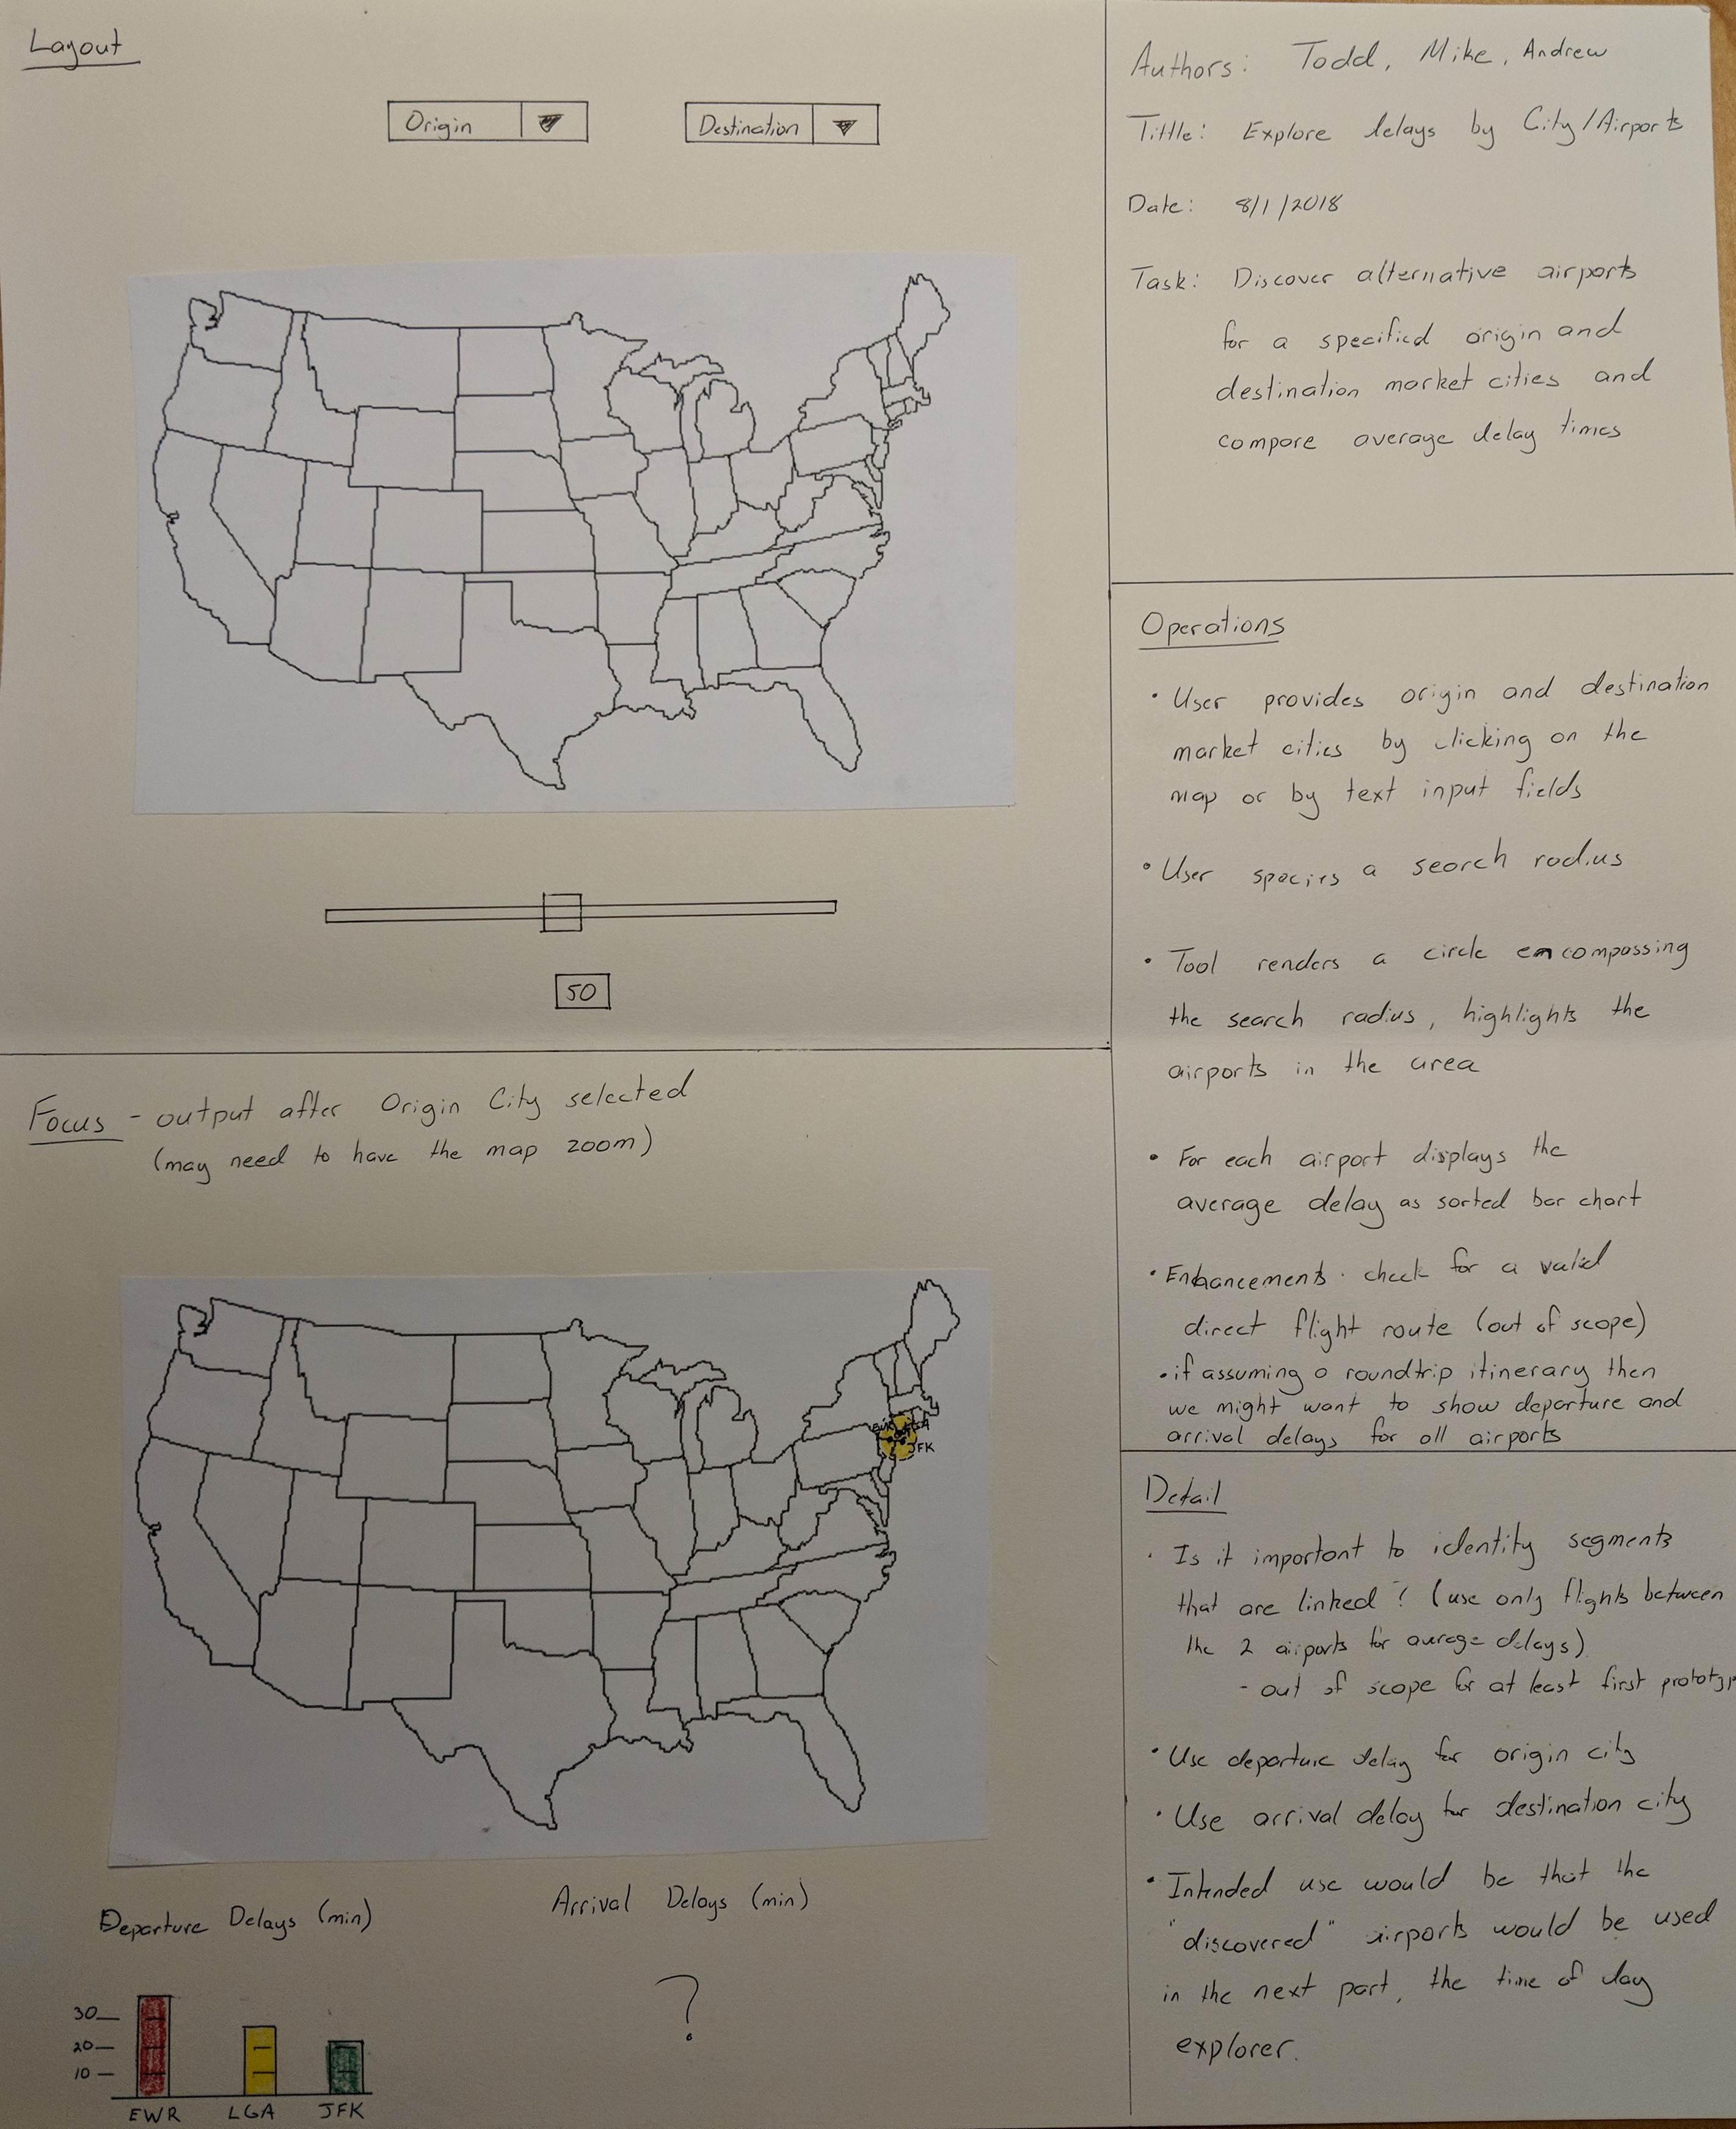 Layout
Origin
Destination
50
Focus - output after Origin City selected
(may need to have the map zoom)
JFK
Departure Delays (min)
Arrival Delays (min)
30
20
10
EWR LGA JFK
?
Authors: Todd, Mike, Andrew
Tittle: Explore delays by City/Airports
Date: 8/1/2018
Task: Discover alternative airports
for a specified origin and
destination market cities and
compare average delay times
Operations
• User provides origin and destination
market cities by clicking on the
map or by text input fields
• User a search radius
• Tool renders a circle encompassing
the search radius, highlights the
airports in the area
• For each airport displays the
average delay as sorted bar chart
• Enhancements · check for a valid
direct flight route (out of scope)
• if assuming a roundtrip itinerary then
we might want to show departure and
arrival delays for all airports
Detail
• Is it important to identity segments
that are linked? (use only flights between
the 2 airports for delays)
- out of scope for at least first prototyp
• Use departure delay for origin city
• Use arrival delay for destination city
• Intended use would be that the
"discovered" airports would be used
in the next part, the time of day
explorer.